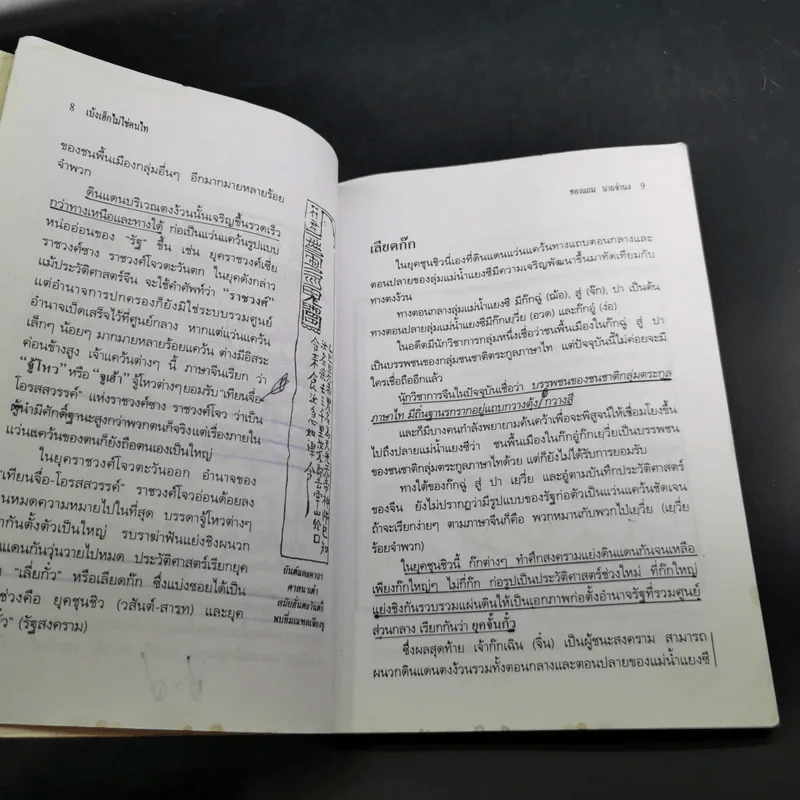 8 เบ้งเฮ็กไม่ใช่คนไท
ของชนพื้นเมืองกลุ่มอื่นๆ อีกมากมายหลายร้อย
จำพวก
ดินแดนบริเวณตงง้วนนั้นเจริญขึ้นรวดเร็ว
กว่าทางเหนือและทางใต้ ก่อเป็นแว่นแคว้นรูปแบบ
หน่ออ่อนของ "รัฐ" ขึ้น เช่น ยุคราชวงศ์เซี่ย
ราชวงศ์ซาง ราชวงศ์โจวตะวันตก ในยุคดังกล่าว
แม้ประวัติศาสตร์จีน จะใช้คำศัพท์ว่า "ราชวงศ์"
แต่อำนาจการปกครองก็ยังมิใช่ระบบรวมศูนย์
อำนาจเบ็ดเสร็จไว้ที่ศูนย์กลาง หากแต่แว่นแคว้น
เล็กๆ น้อยๆ มากมายหลายร้อยแคว้น ต่างมีอิสระ
ค่อนข้างสูง เจ้าแคว้นต่างๆ นี้ ภาษาจีนเรียก ว่า
"จูโหว" หรือ "จูเฮ้า" จู้โหวต่างๆยอมรับ "เทียนจื่อ-
โอรสสวรรค์" แห่งราชวงศ์ซาง ราชวงศ์โจว ว่าเป็น
ผู้นำมีศักดิ์ฐานะสูงกว่าพวกตนก็จริงแต่เรื่องภายใน
แว่นแคว้นของตนก็ยังถือตนเองเป็นใหญ่
ในยุคราชวงศ์โจวตะวันออก อำนาจของ
"เทียนจื่อ-โอรสสวรรค์" ราชวงศ์โจวอ่อนด้อยลง
จนหมดความหมายไปในที่สุด บรรดาจู้โหวต่างๆ
ากันตั้งตัวเป็นใหญ่ รบราฆ่าฟันแย่งชิงผนวก
แดนกันวุ่นวายไปหมด ประวัติศาสตร์เรียกยุค
"เลี่ยกั๋ว" หรือเลียดก๊ก ซึ่งแบ่งซอยได้เป็น
ช่วงคือ ยุคชุนชิว (วสันต์-สารท) และยุค
" (รัฐสงคราม)
ยันต์และคาถา
ศาสนาเต๋า
สมัยฮั่นตะวันตก
พบที่มณฑลเจียงซู
ทองแถม นาถจำนง 9
เลียดก๊ก
ในยุคชุนชิวนี่เองที่ดินแดนแว่นแคว้นทางแถบตอนกลางและ
ตอนปลายของลุ่มแม่น้ำแยงซีมีความเจริญพัฒนาขึ้นมาทัดเทียมกับ
ทางตงง้วน
ทางตอนกลางลุ่มแม่น้ำแยงซี มีก๊กฉู่ (ฌ้อ), สู่ (จ๊ก), ปา เป็นต้น
ทางตอนปลายลุ่มแม่น้ำแยงซีมีก๊กเยวี่ย (อวด) และก๊กอู๋ (ง่อ)
ในอดีตมีนักวิชาการกลุ่มหนึ่งเชื่อว่าชนพื้นเมืองในก๊กฉู่ สู่ ปา
เป็นบรรพชนของกลุ่มชนชาติตระกูลภาษาไท แต่ปัจจุบันนี้ไม่ค่อยจะมี
ใครเชื่อถืออีกแล้ว
นักวิชาการจีนในปัจจุบันเชื่อว่า บรรพชนของชนชาติกลุ่มตระกูล
ภาษาไท มีถิ่นฐานรกรากอยู่แถบกวางตุ้ง กวางสี
และก็มีบางคนกำลังพยายามค้นคว้าเพื่อจะพิสูจน์ให้เชื่อมโยงขึ้น
ไปถึงปลายแม่น้ำแยงซีว่า ชนพื้นเมืองในก๊กอู๋ก๊กเยวี่ยเป็นบรรพชน
ของชนชาติกลุ่มตระกูลภาษาไทด้วย แต่ก็ยังไม่ได้รับการยอมรับ
ทางใต้ของก๊กฉู่ สู่ ปา เยวี่ย และอู๋ตามบันทึกประวัติศาสตร์
ของจีน ยังไม่ปรากฏว่ามีรูปแบบของรัฐก่อตัวเป็นแว่นแคว้นชัดเจน
ถ้าจะเรียกง่ายๆ ตามภาษาจีนก็คือ พวกหมานกับพวกไป่เยวี่ย (เยวี่ย
ร้อยจำพวก)
ในยุคชุนชิวนี้ ก๊กต่างๆ ทำศึกสงครามแย่งดินแดนกันจนเหลือ
เพียงก๊กใหญ่ๆ ไม่กี่ก๊ก ก่อรูปเป็นประวัติศาสตร์ช่วงใหม่ ที่ก๊กใหญ่
แย่งชิงกันรวบรวมแผ่นดินให้เป็นเอกภาพก่อตั้งอำนาจรัฐที่รวมศูนย์
ส่วนกลาง เรียกกันว่า ยุคจั้นกั๋ว
ซึ่งผลสุดท้าย เจ้าก๊กเฉิน (จิ๋น) เป็นผู้ชนะสงคราม สามารถ
ผนวกดินแดนตงง้วนรวมทั้งตอนกลางและตอนปลายของแม่น้ำแยงซี